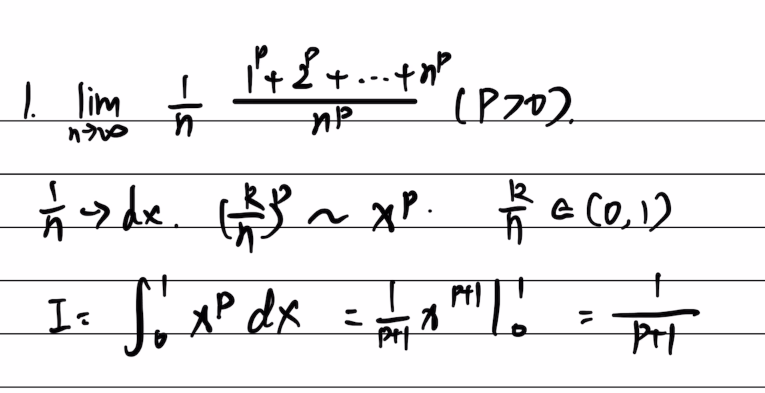 1. lim n→∞ 1/n (1^p + 2^p + ... + n^p)/n^p (P>0).
1/n → dx. (k/n)^p ~ x^p. k/n ∈ (0,1)
I = ∫_0^1 x^p dx = 1/(p+1) x^(p+1) |_0^1 = 1/(p+1)